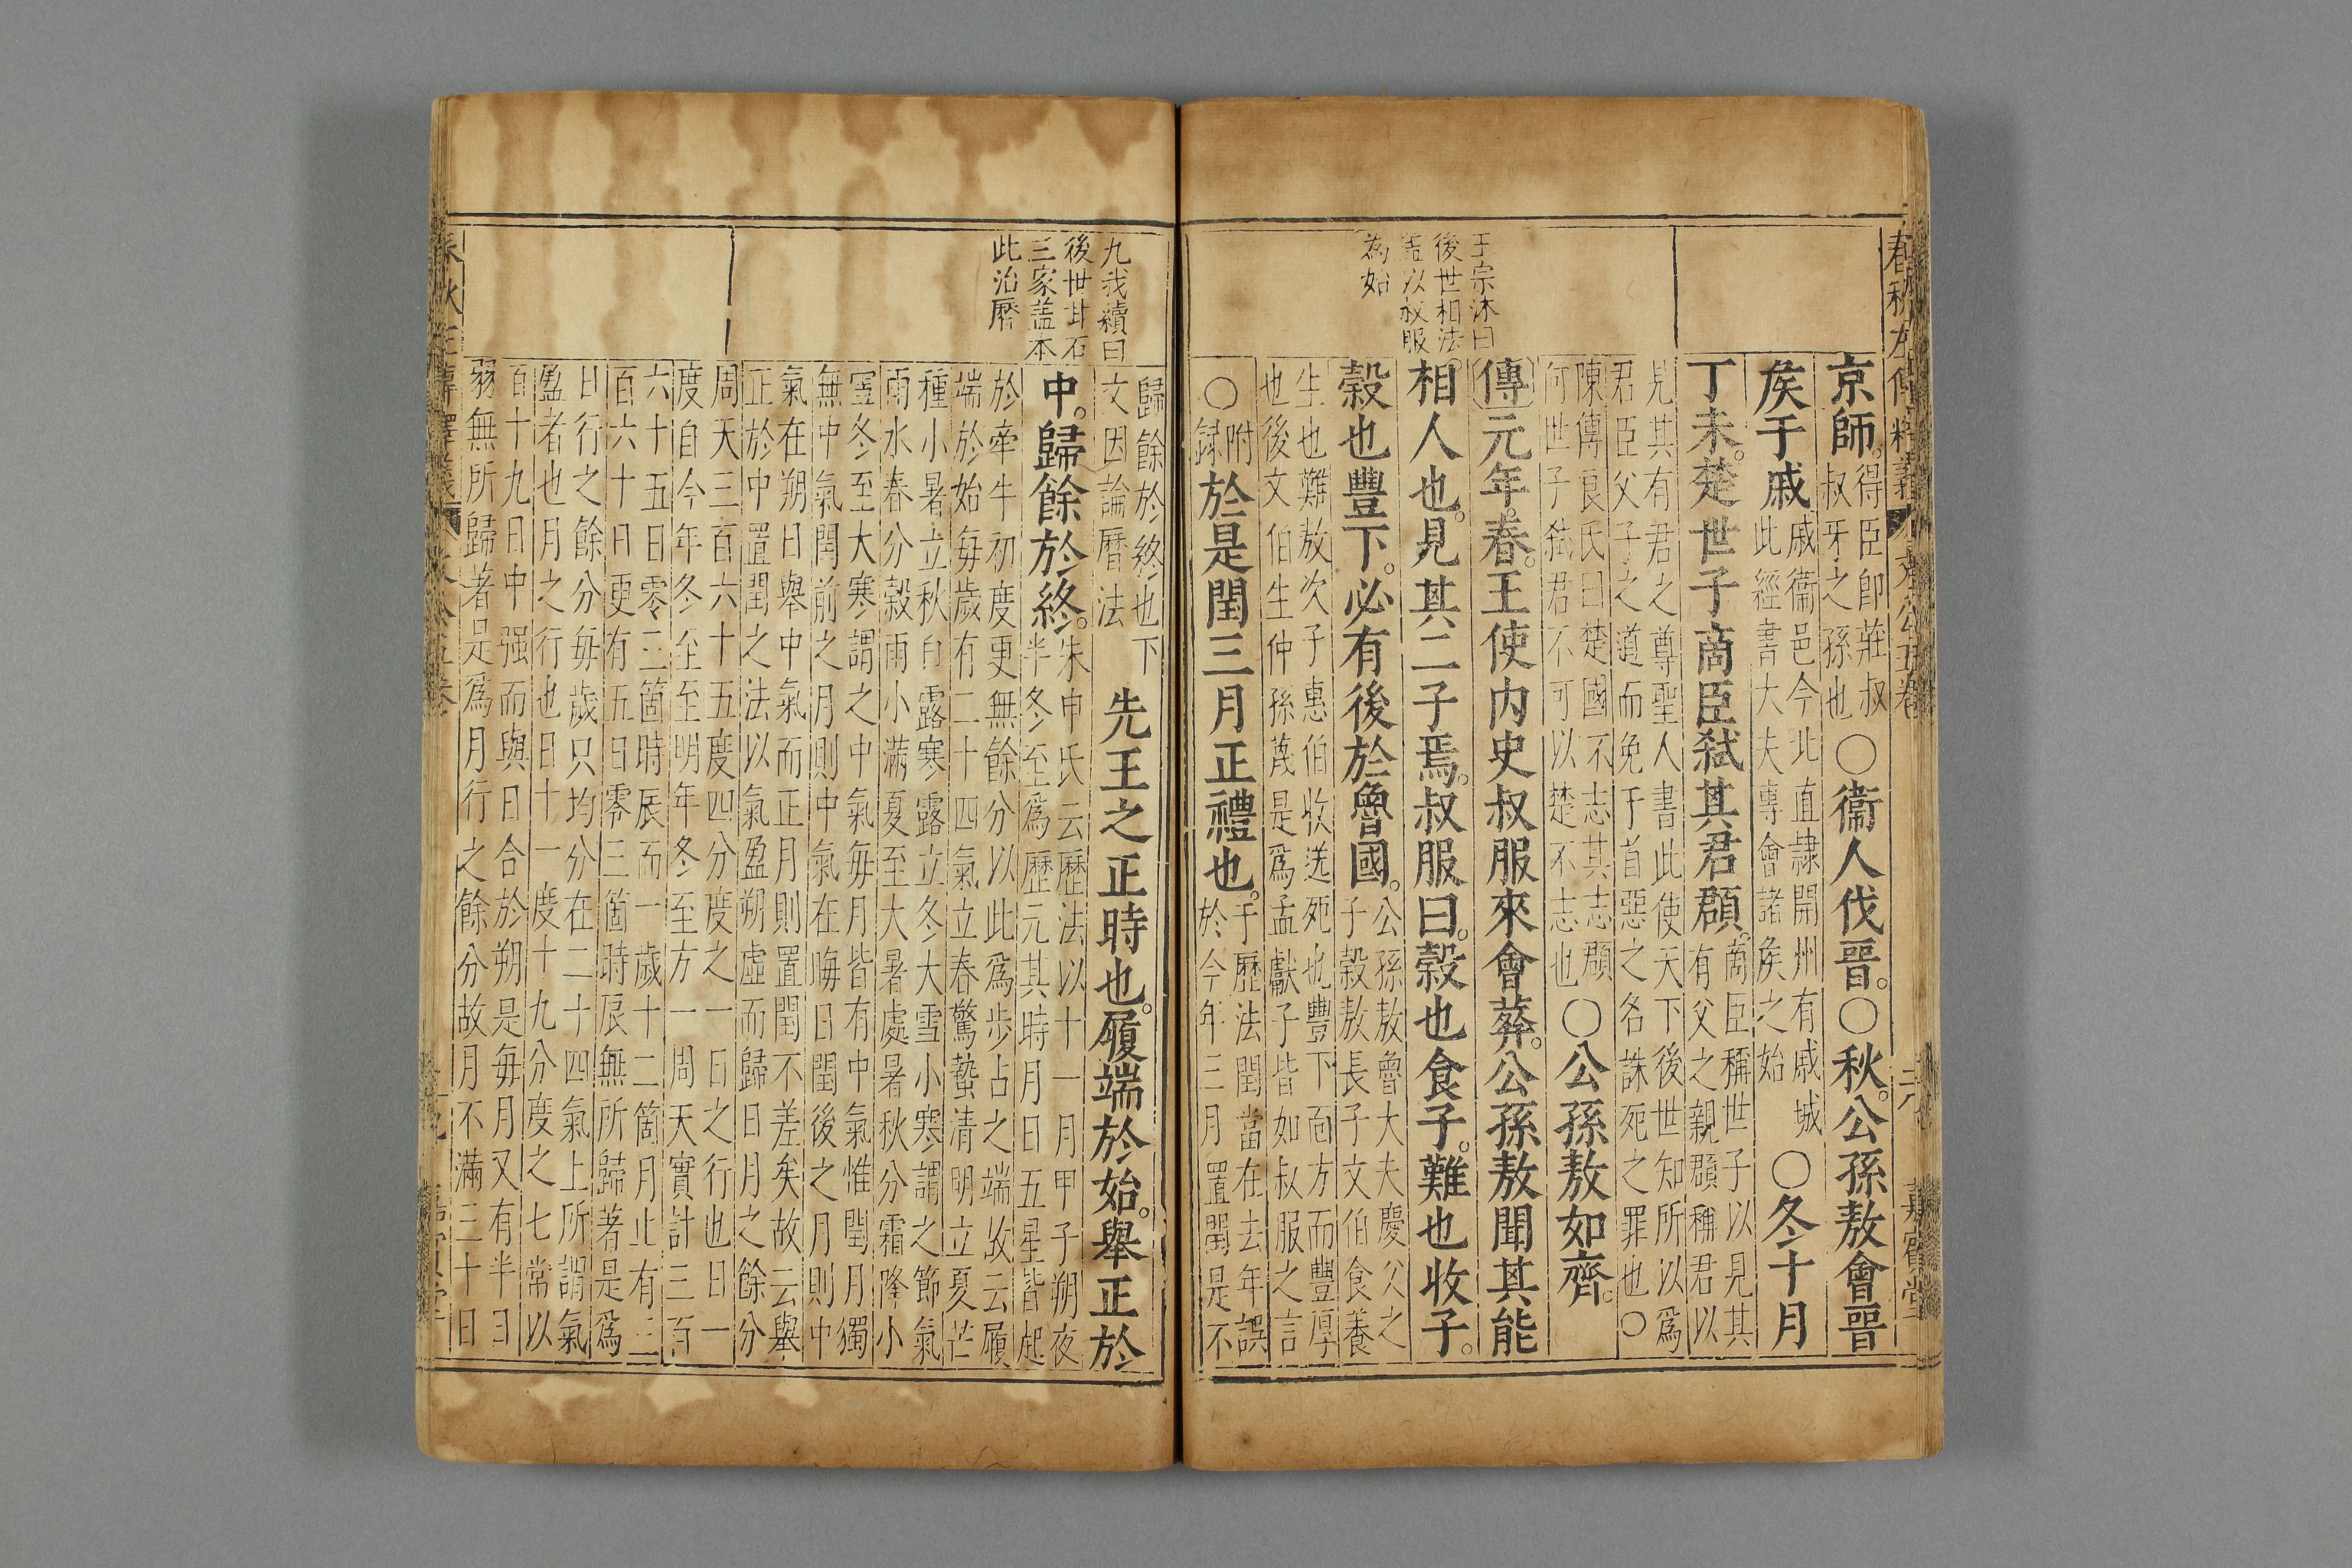 京師。得臣卽莊叔
叔牙之孫也
○衞人伐晉。○秋。公孫敖會晉
矦于戚
戚衞邑今北直隷開州有戚城
此經書大夫專會諸矦之始
○冬十月
丁未。楚世子商臣弑其君頵。
商臣稱世子以見其
有父之親頵稱君以
見其有君之尊聖人書此使天下後世知所以爲
君臣父子之道而免于首惡之名誅死之罪也○
陳傅良氏曰楚國不志其志頵
何世子弑君不可以楚不志也
○公孫敖如齊。
傳元年。春。王使内史叔服來會葬。公孫敖聞其能
相人也。見其二子焉。叔服曰。榖也食子。難也收子。
榖也豐下。必有後於魯國。
公孫敖魯大夫慶父之
子榖敖長子文伯食養
生也難敖次子惠伯收送死也豐下面方而豐厚
也後文伯生仲孫蔑是爲孟獻子皆如叔服之言
○附
録
於是閏三月正禮也。
于歷法閏當在去年誤
於今年三月置閏是不
王宗沐曰
後世相法
葢以叔服
為始
春秋左傳釋義
文公五卷
嘉賓堂
歸餘於終也下
文因論曆法
先王之正時也。履端於始。舉正於
中。歸餘於終。
朱申氏云歷法以十一月甲子朔夜
半冬至爲歷元其時月日五星皆起
於牽牛初度更無餘分以此爲步占之端故云履
端於始每歲有二十四氣立春驚蟄清明立夏芒
種小暑立秋白露寒露立冬大雪小寒謂之節氣
雨水春分穀雨小滿夏至大暑處暑秋分霜降小
雪冬至大寒謂之中氣每月皆有中氣惟閏月獨
無中氣閏前之月則中氣在晦日閏後之月則中
氣在朔日舉中氣而正月則置閏不差矣故云舉
正於中置閏之法以氣盈朔虛而歸日月之餘分
周天三百六十五度四分度之一日之行也日一
度自今年冬至至明年冬至方一周天實計三百
六十五日零三箇時辰而一歲十二箇月止有三
百六十日更有五日零三箇時辰無所歸著是爲
日行之餘分每歲只均分在二十四氣上所謂氣
盈者也月之行也日十一度十九分度之七常以
百十九日中强而與日合於朔是每月又有半日
弱無所歸著是爲月行之餘分故月不滿三十日
九我續曰
後世甘石
三家葢本
此治曆